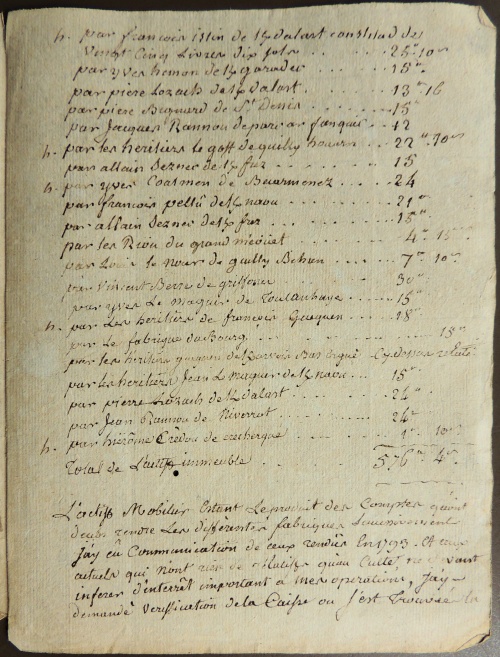 h. par francois istin de Kdalast constitud de
Vingt Cinq Livres dix sols . . . 25" 10s
par yves hemon de Kgaradec . . . 15"
par piere Lozach de Kdalart . . . 13" 16
par piere Buguard de St Denis . . . 15"
par Jacques Rannou de parc ar fanquic . . 12
h. par les heritiers le goff de quilly houarn . . 22" 10s
par allain Seznec de Kfur . . . 15
h. par yves Coatmen de . . . 24
par francois pellu de Knaou . . . 21"
par allain Seznec de Kfur . . . 15"
par les Riou du grand . . . 4" 15
par Louis le Nour de quilly Bihan . . . 7" 10s
par Vincent Berre de . . . 30"
par yves Le Maguer de Toulanhaye . . . 15"
h. par Les heritiers de francois Gueguen . . . 18"
par Le fabrique du Bourg . . . 15"
par les heritiers Cy dessus relaté
par les heritiers Jean Le Maguer de Knaou . . . 15"
par pierre Lozach de Kdalart . . . 24"
par Jean Rannou de Niverrot . . . 24"
h. par hierôme de . . . 1" 10s
Total de L'actif immeuble . . . 576" 4s
L'actif Mobilier Etant Le produit des Comptes qu'ont
deub rendre Les differentes fabriques
J'ay eû Communication de ceux rendûs En 1793. Et ceux
actuels qui n'ont rien de relatifs qu'au Culte, ne devant
inferer d'interrêt important a mes operations, J'ay
demandé verification de la Caisse ou s'est Trouvée la